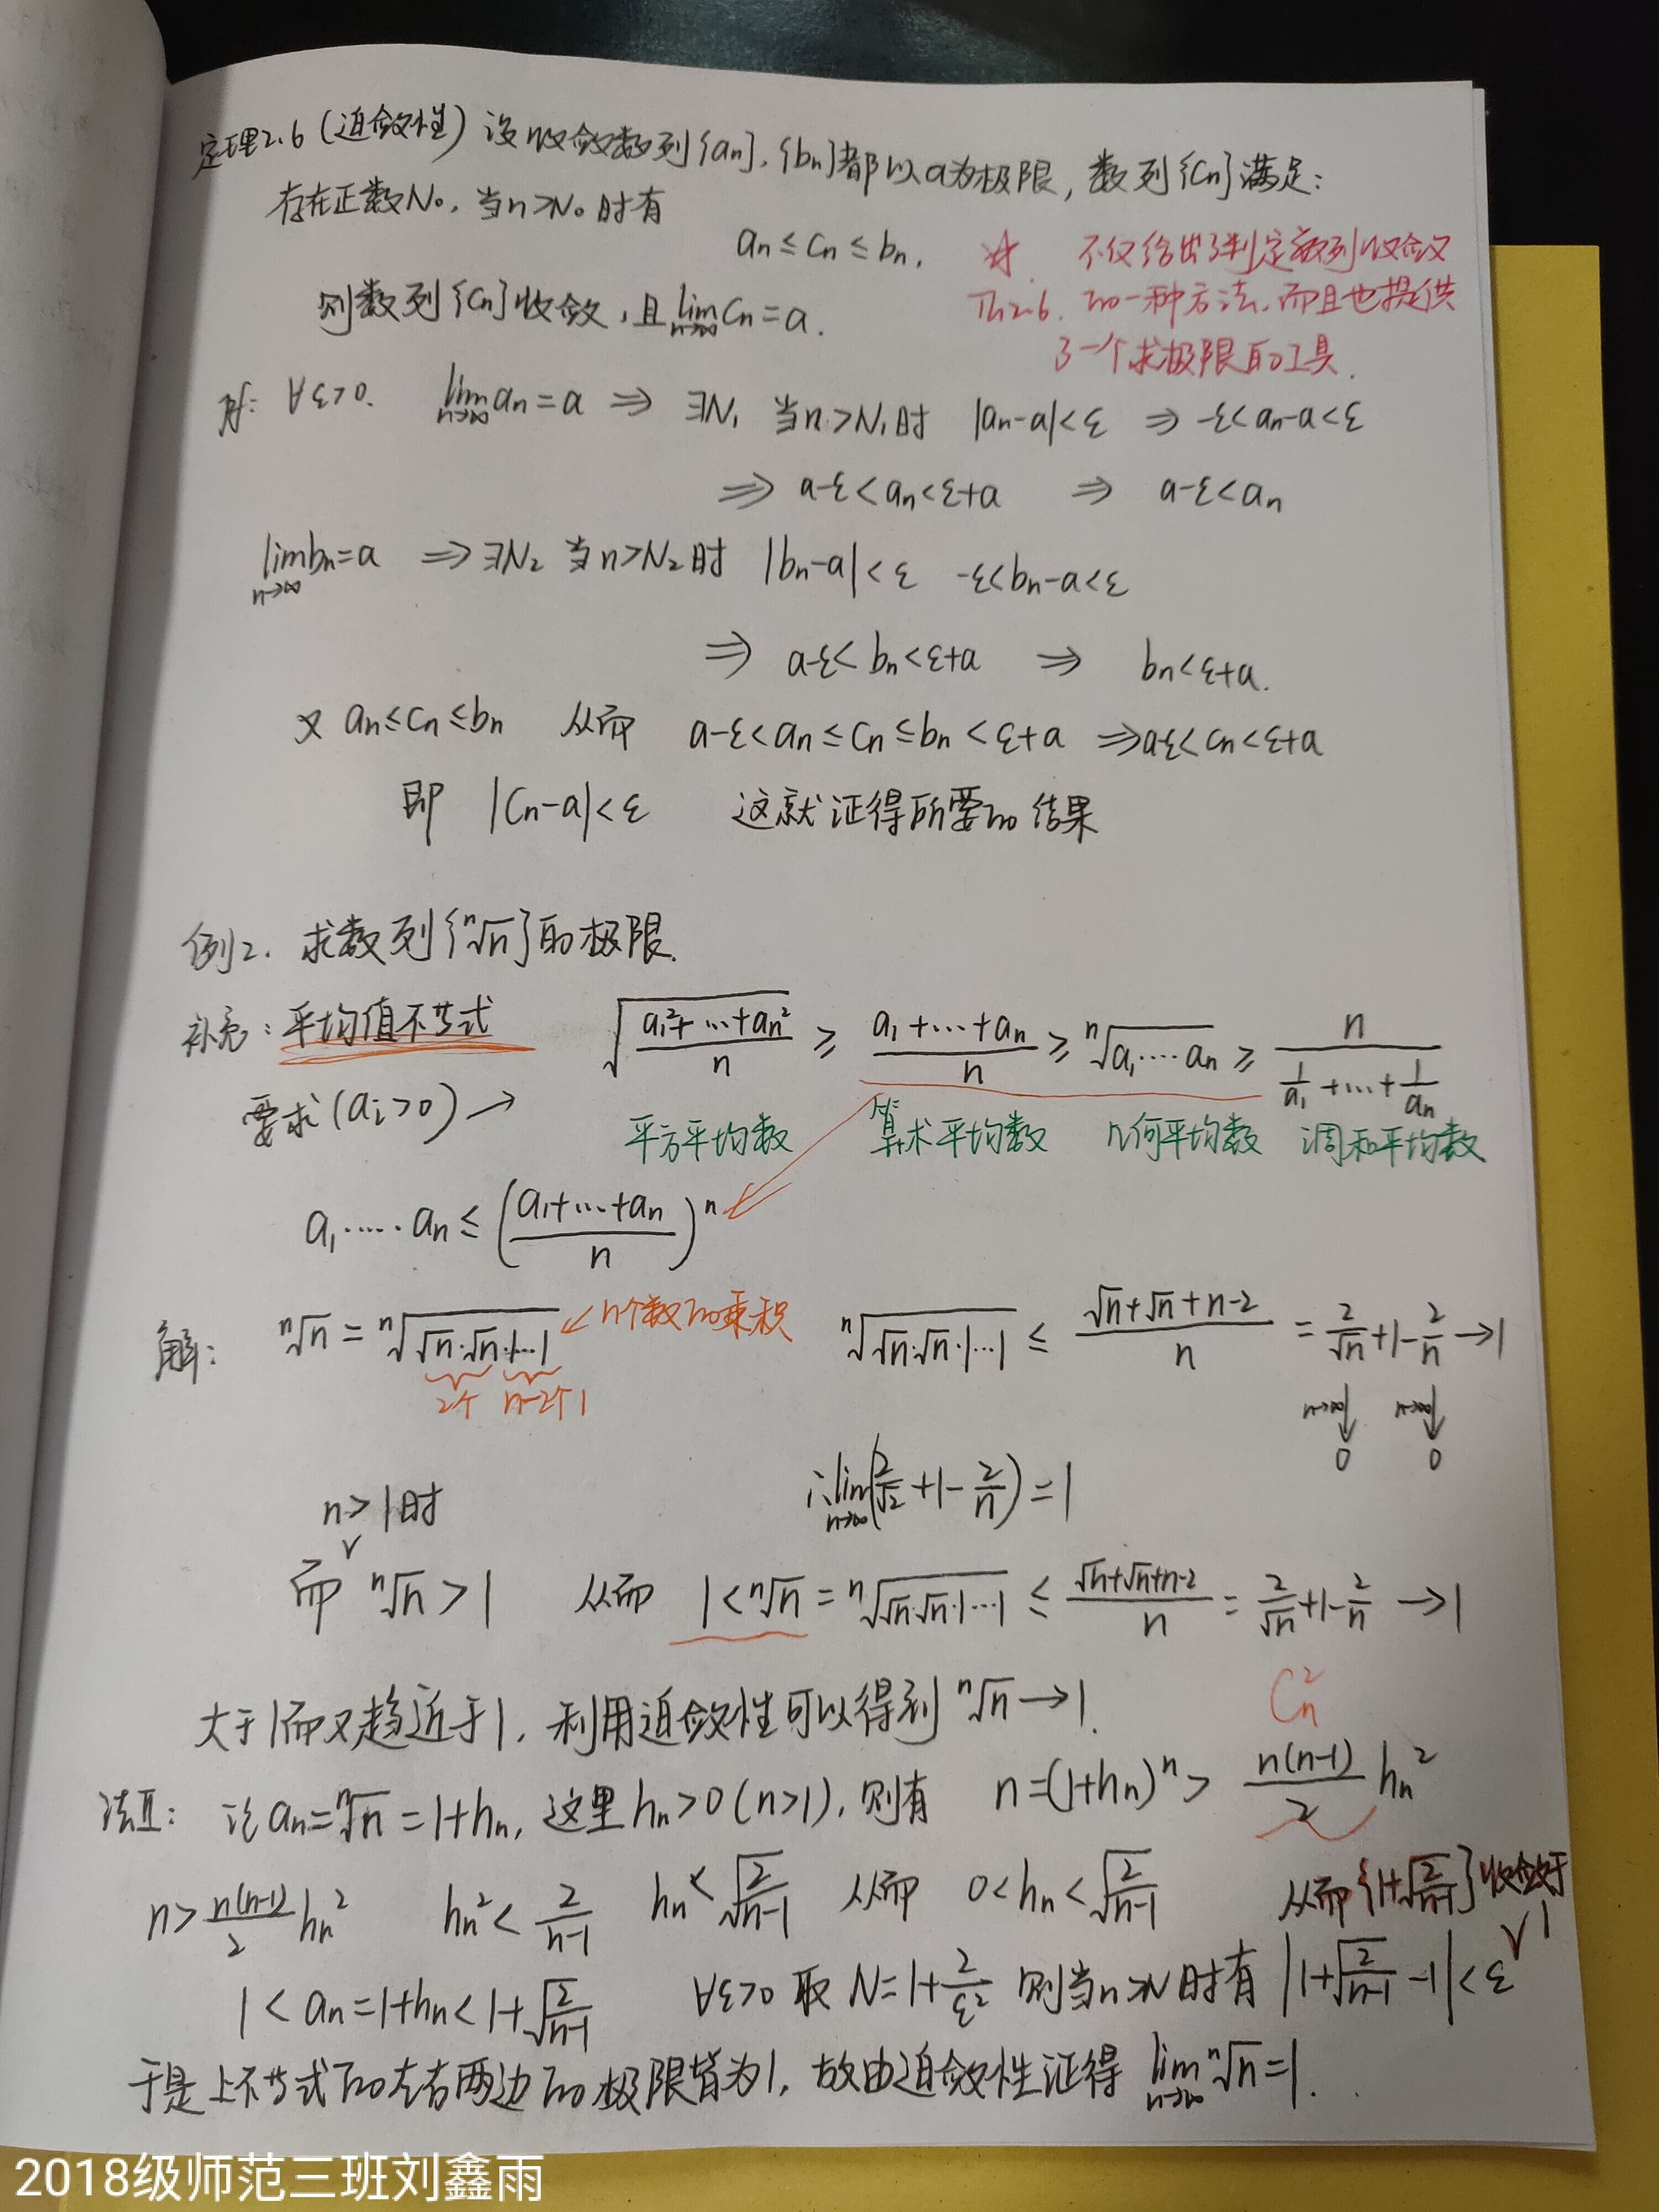 定理2.6(迫敛性) 设收敛数列{an},{bn}都以a为极限,数列{Cn}满足:
存在正数N₀,当n>N₀时有
an≤cn≤bn.
☆ 不仅给出了判定数列收敛
则数列{Cn}收敛,且lim n→∞ Cn=a.
Th2.6. 的一种方法,而且也提供
了一个求极限的工具.
∀ε>0. lim n→∞ an=a ⇒ ∃N₁ 当n>N₁时 |an-a|<ε ⇒ -ε<an-a<ε
⇒ a-ε<an<ε+a ⇒ a-ε<an
lim n→∞ bn=a ⇒ ∃N₂ 当n>N₂时 |bn-a|<ε -ε<bn-a<ε
⇒ a-ε<bn<ε+a ⇒ bn<ε+a.
又 an≤cn≤bn 从而 a-ε<an≤cn≤bn<ε+a ⇒a-ε<cn<ε+a
即 |Cn-a|<ε 这就证得所要的结果
例2. 求数列{ⁿ√n}的极限.
补充:平均值不等式 √((a₁²+…+an²)/n) ≥ (a₁+…+an)/n ≥ ⁿ√(a₁····an) ≥ n/(1/a₁+…+1/an)
要求(ai>0)→
平方平均数 算术平均数 几何平均数 调和平均数
a₁·····an ≤ ((a₁+…+an)/n)ⁿ
解: ⁿ√n = ⁿ√(√n·√n·1…1) ←n个数的乘积 ⁿ√(√n·√n·1…1) ≤ (√n+√n+n-2)/n = 2/√n+1-2/n →1
2个 n-2个1
n→∞ n→∞
0 0
n>1时 ∴lim n→∞ (2/√2+1-2/n)=1
而 ⁿ√n>1 从而 1<ⁿ√n = ⁿ√(√n·√n·1…1) ≤ (√n+√n+n-2)/n = 2/√n+1-2/n →1
大于1而又趋近于1,利用迫敛性可以得到 ⁿ√n→1.
Cn²
法Ⅱ: 记an=ⁿ√n=1+hn,这里hn>0(n>1),则有 n=(1+hn)ⁿ> n(n-1)/2 hn²
n> n(n-1)/2 hn² hn²< 2/(n-1) hn<√(2/(n-1)) 从而 0<hn<√(2/(n-1)) 从而{1+√(2/(n-1))}收敛于1
1<an=1+hn<1+√(2/(n-1)) ∀ε>0 取 N=1+2/ε² 则当n>N时有 |1+√(2/(n-1))-1|<ε
于是上不等式的左右两边的极限皆为1,故由迫敛性证得 lim n→∞ ⁿ√n=1.
2018级师范三班刘鑫雨